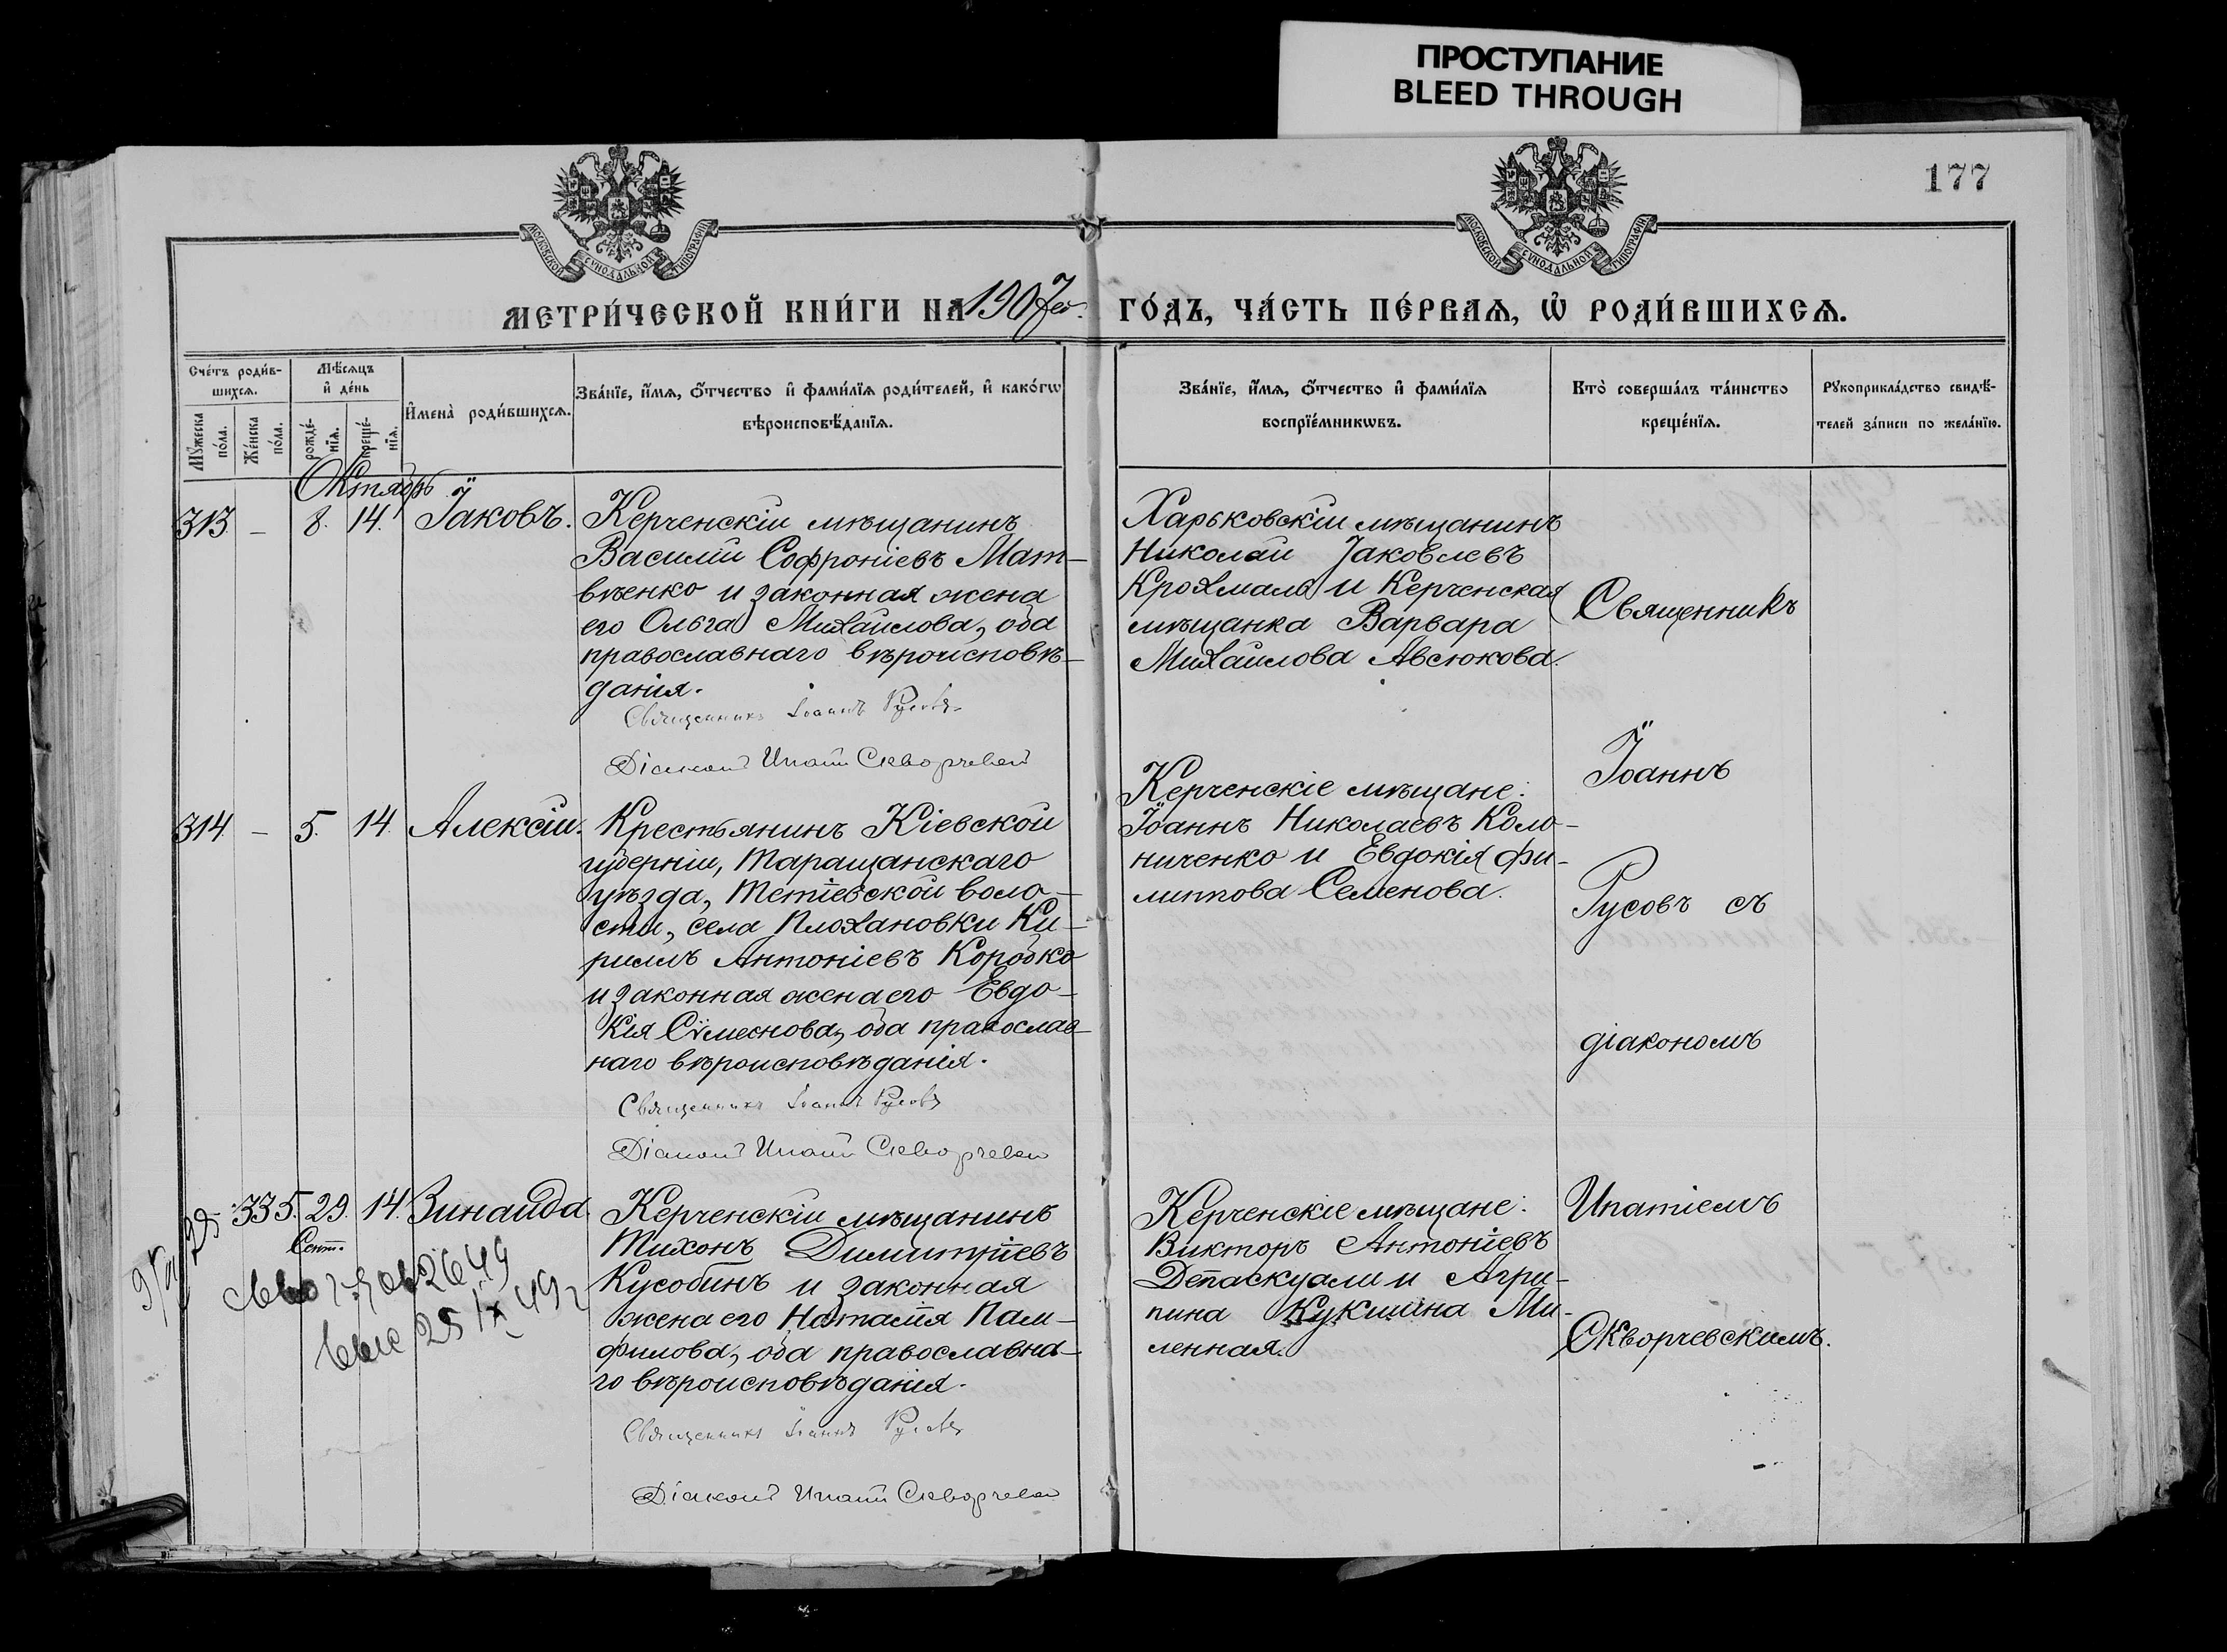 ПРОСТУПАНИЕ
BLEED THROUGH
177
МОСКОВСКОЙ СѴНОДАЛЬНОЙ ТИПОГРАФІИ
МОСКОВСКОЙ СѴНОДАЛЬНОЙ ТИПОГРАФІИ
МЕТРИ́ЧЕСКОЙ КНИ́ГИ НА 1907 й ГО́ДЪ, ЧА́СТЬ ПЕ́РВАѦ, Ѿ РОДИ́ВШИХСѦ.
Сче́тъ роди́в-
шихсѧ.
Мꙋжеска по́ла.
Же́нска по́ла.
Мѣ́сѧцъ
и҆ де́нь
рожде́-
нїѧ.
креще́-
нїѧ.
И҆мена̀ роди́вшихсѧ.
Зва́нїе, и҆́мѧ, ѻ҆́тчество и҆ фами́лїѧ роди́телей, и҆ како́гѡ
вѣроисповѣ́данїѧ.
Зва́нїе, и҆́мѧ, ѻ҆́тчество и҆ фами́лїѧ
воспрїе́мникѡвъ.
Кто̀ соверша́лъ та́инство
креще́нїѧ.
Рꙋкоприкла́дство свидѣ́-
телей за́писи по жела́нїю.
Октябрь
313 – 8. 14. Їаковъ.
Керченскій мѣщанинъ
Василій Софроніевъ Мат-
вѣенко и законная жена
его Ольга Михайлова, оба
православнаго вѣроисповѣ-
данія.
Священникъ Іоаннъ Русовъ
Діаконъ Ипатій Скворчевскій
Харьковскій мѣщанинъ
Николай Іаковлевъ
Крохмаль и Керченская
мѣщанка Варвара
Михайлова Авсюкова.
314 – 5. 14. Алексій.
Крестьянинъ Кіевской
губерніи, Таращанскаго
уѣзда, Тетіевской воло-
сти, села Плохановки Ки-
риллъ Антоніевъ Коробко
и законная жена его Евдо-
кія Сѵмеонова, оба православ-
наго вѣроисповѣданія.
Священникъ Іоаннъ Русовъ
Діаконъ Ипатій Скворчевскій
Керченскіе мѣщане:
Їоаннъ Николаевъ Коло-
ниченко и Евдокія Фи-
липпова Семенова.
335. 29. 14. Зинаида.
Сент.
Керченскій мѣщанинъ
Тихонъ Димитріевъ
Кусобинъ и законная
жена его Наталія Пам-
филова, оба православна-
го вѣроисповѣданія.
Священникъ Іоаннъ Русовъ
Діаконъ Ипатій Скворчевскій
Керченскіе мѣщане:
Викторъ Антоніевъ
Депаскуали и Агри-
пина Кукшина Ми-
ленная.
Священникъ
Їоаннъ
Русовъ съ
діакономъ
Ипатіемъ
Скворчевскимъ.